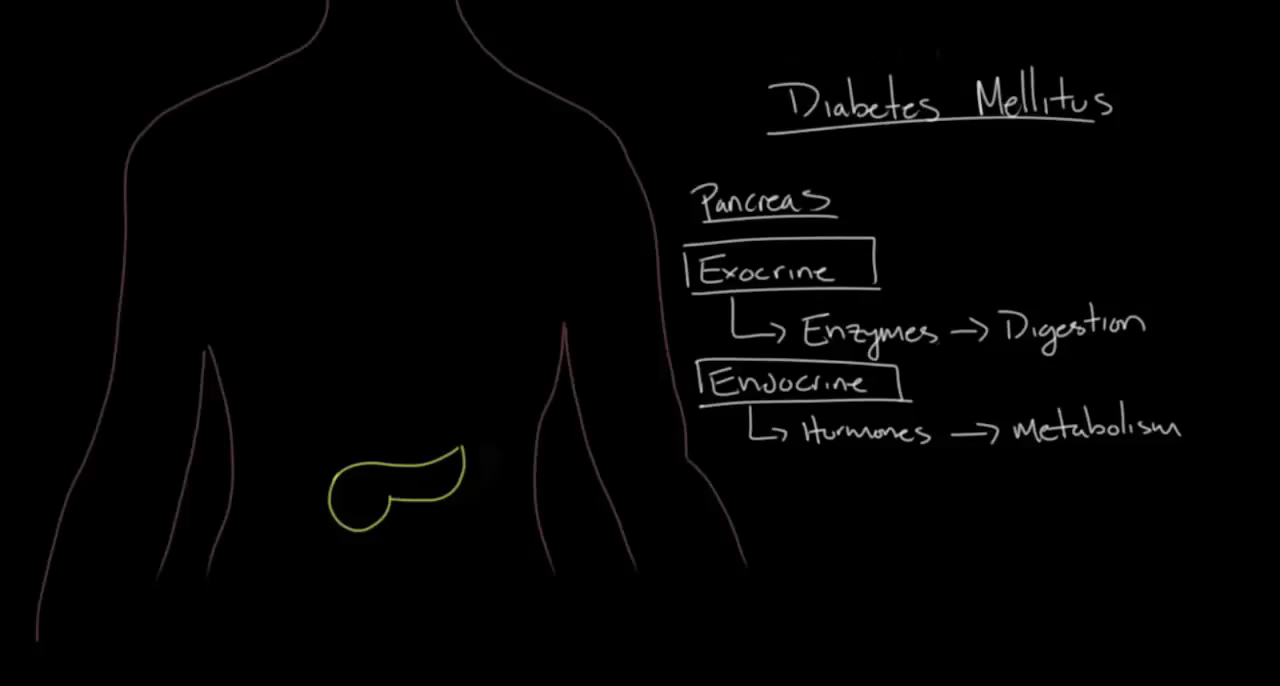 Diabetes Mellitus
Pancreas
Exocrine
↳ Enzymes → Digestion
Endocrine
↳ Hormones → Metabolism